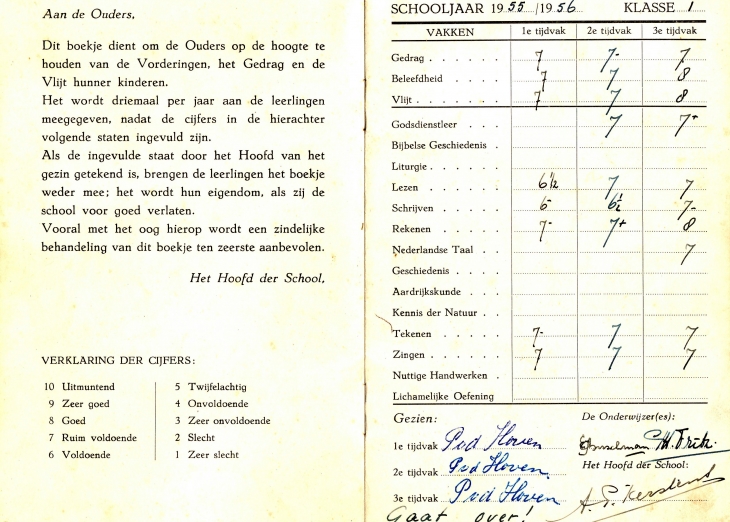 Aan de Ouders,
Dit boekje dient om de Ouders op de hoogte te
houden van de Vorderingen, het Gedrag en de
Vlijt hunner kinderen.
Het wordt driemaal per jaar aan de leerlingen
meegegeven, nadat de cijfers in de hierachter
volgende staten ingevuld zijn.
Als de ingevulde staat door het Hoofd van het
gezin getekend is, brengen de leerlingen het boekje
weder mee; het wordt hun eigendom, als zij de
school voor goed verlaten.
Vooral met het oog hierop wordt een zindelijke
behandeling van dit boekje ten zeerste aanbevolen.
Het Hoofd der School,
VERKLARING DER CIJFERS:
10 Uitmuntend
9 Zeer goed
8 Goed
7 Ruim voldoende
6 Voldoende
5 Twijfelachtig
4 Onvoldoende
3 Zeer onvoldoende
2 Slecht
1 Zeer slecht
SCHOOLJAAR 1955/1956 KLASSE 1
VAKKEN 1e tijdvak 2e tijdvak 3e tijdvak
Gedrag . . . . . . 7 7- 7
Beleefdheid . . . . 7 7 8
Vlijt . . . . . . . 7 7 8
Godsdienstleer . . . 7 7+
Bijbelse Geschiedenis .
Liturgie . . . . . .
Lezen . . . . . . 6½ 7 7
Schrijven . . . . . 6- 6½ 7-
Rekenen . . . . . 7- 7+ 8
Nederlandse Taal . . 7
Geschiedenis . . . .
Aardrijkskunde . . .
Kennis der Natuur . .
Tekenen . . . . . 7- 7 7
Zingen . . . . . . 7 7 7
Nuttige Handwerken .
Lichamelijke Oefening
Gezien: De Onderwijzer(es):
1e tijdvak Pvd Hoven
2e tijdvak Pvd Hoven Het Hoofd der School:
3e tijdvak Pvd Hoven
Gaat over!